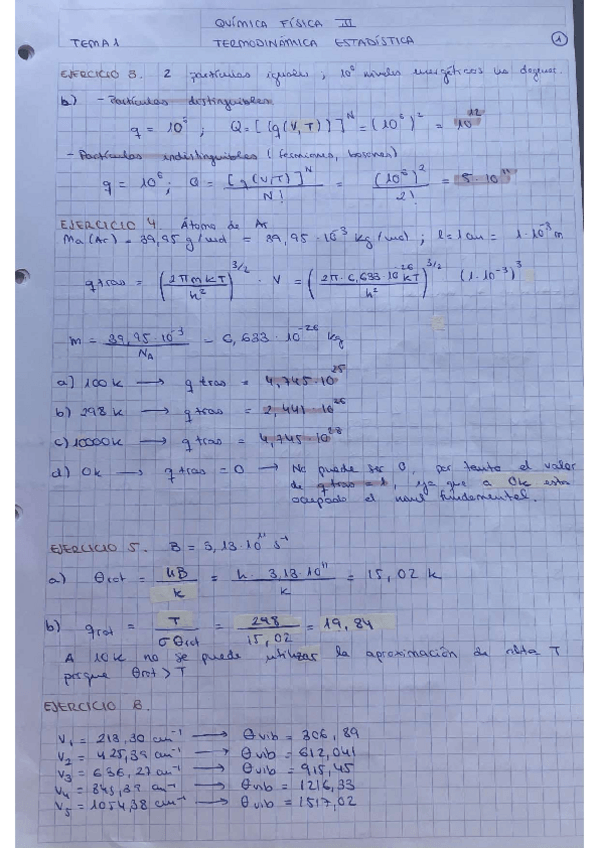 QUÍMICA FÍSICA III
TEMA 1 TERMODINÁMICA ESTADÍSTICA 1
EJERCICIO 3. 2 partículas iguales ; 10⁶ niveles energéticos no degener.
b) - Partículas distinguibles
q = 10⁶ ; Q = [(q(V,T))]ᴺ = (10⁶)² = 10¹²
- Partículas indistinguibles (fermiones, bosones)
q = 10⁶ ; Q = [q(V,T)]ᴺ / N! = (10⁶)² / 2! = 5·10¹¹
EJERCICIO 4. Átomo de Ar
Ma (Ar) = 39,95 g/mol = 39,95·10⁻³ kg/mol ; l = 1 cm = 1·10⁻³ m
q tras = (2πmkT / h²)^3/2 · V = (2π·6,633·10⁻²⁶ kT / h²)^3/2 (1·10⁻³)³
m = 39,95·10⁻³ / NA = 6,633·10⁻²⁶ kg
a) 100 K → q tras = 4,745·10²⁵
b) 298 K → q tras = 2,441·10²⁶
c) 10000 K → q tras = 4,745·10²⁸
d) 0K → q tras = 0 → No puede ser 0, por tanto el valor
de q tras = 1, ya que a 0K esta
ocupado el nivel fundamental.
EJERCICIO 5. B = 3,13·10¹¹ s⁻¹
a) θrot = hB / k = h·3,13·10¹¹ / k = 15,02 K
b) qrot = T / σθrot = 298 / 15,02 = 19,84
A 10K no se puede utilizar la aproximación de alta T
porque θrot > T
EJERCICIO 6.
V₁ = 213,30 cm⁻¹ → θvib = 306,89
V₂ = 425,39 cm⁻¹ → θvib = 612,041
V₃ = 636,27 cm⁻¹ → θvib = 915,45
V₄ = 845,39 cm⁻¹ → θvib = 1216,33
V₅ = 1054,38 cm⁻¹ → θvib = 1517,02